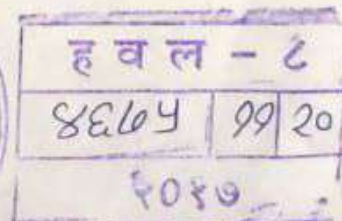 ह व ल - ८
४६७५ ११ २०
२०१७